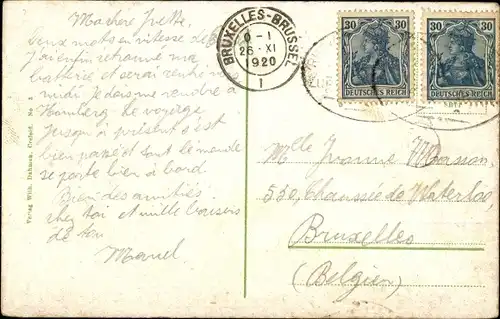 Ma chère Yvette.
Deux mots en vitesse
J'ai enfin retrouvé ma
batterie et serai rentré
midi je dois me rendre à
Hamburg. Le voyage
jusqu'à présent s'est
bien passé et tout le monde
se porte bien à bord
Bien des amitiés
chez toi et mille baisers
de ton
Marcel
Verlag Wilh. Dahmen, Crefeld. No.
BRUXELLES-BRUSSEL
0-1
26 XI
1920
1
30 30
DEUTSCHES REICH
30 30
DEUTSCHES REICH
Mlle Yvonne Masson,
530, Chaussée de Waterloo,
Bruxelles
(Belgien)